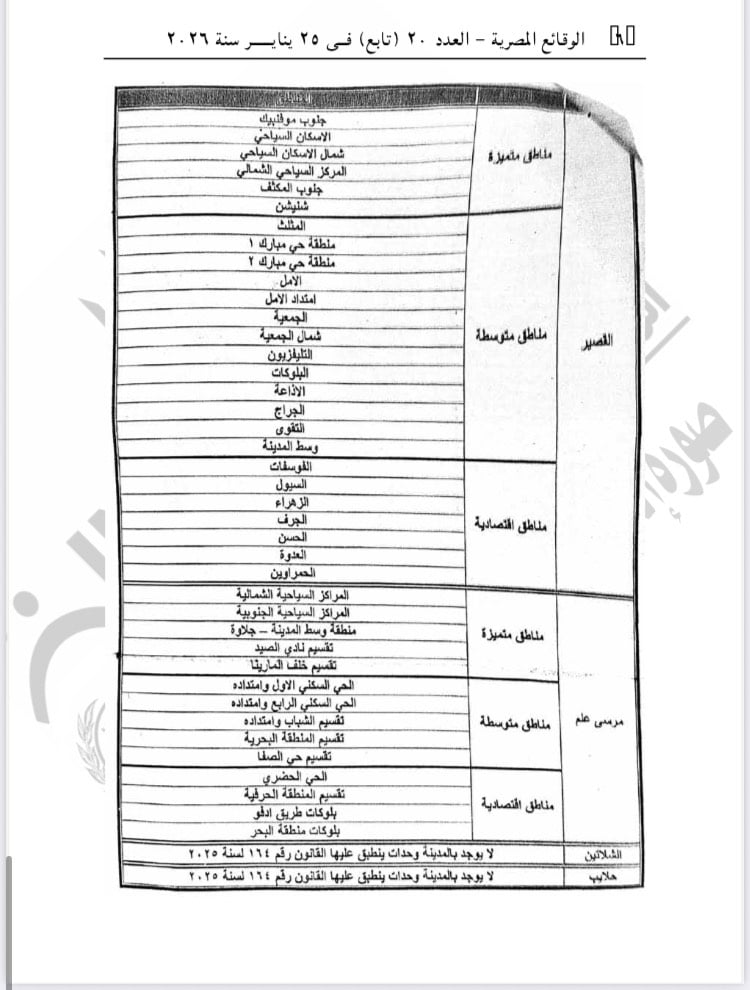 الوقائع المصرية – العدد ٢٠ (تابع) فى ٢٥ ينايـــر سنة ٢٠٢٦
القصير
مناطق متميزة
جنوب موفنبيك
الاسكان السياحي
شمال الاسكان السياحي
المركز السياحي الشمالي
جنوب المكثف
شنيشن
مناطق متوسطة
المثلث
منطقة حي مبارك ١
منطقة حي مبارك ٢
الامل
امتداد الامل
الجمعية
شمال الجمعية
التليفزيون
البلوكات
الاذاعة
الجراج
التقوى
وسط المدينة
مناطق اقتصادية
الفوسفات
السيول
الزهراء
الجرف
الحسن
العدوة
الحمراوين
مرسى علم
مناطق متميزة
المراكز السياحية الشمالية
المراكز السياحية الجنوبية
منطقة وسط المدينة – جلاوة
تقسيم نادي الصيد
تقسيم خلف المارينا
مناطق متوسطة
الحي السكني الاول وامتداده
الحي السكني الرابع وامتداده
تقسيم الشباب وامتداده
تقسيم المنطقة البحرية
تقسيم حي الصفا
مناطق اقتصادية
الحي الحضري
تقسيم المنطقة الحرفية
بلوكات طريق ادفو
بلوكات منطقة البحر
الشلاتين لا يوجد بالمدينة وحدات ينطبق عليها القانون رقم ١٦٤ لسنة ٢٠٢٥
حلايب لا يوجد بالمدينة وحدات ينطبق عليها القانون رقم ١٦٤ لسنة ٢٠٢٥
صورة